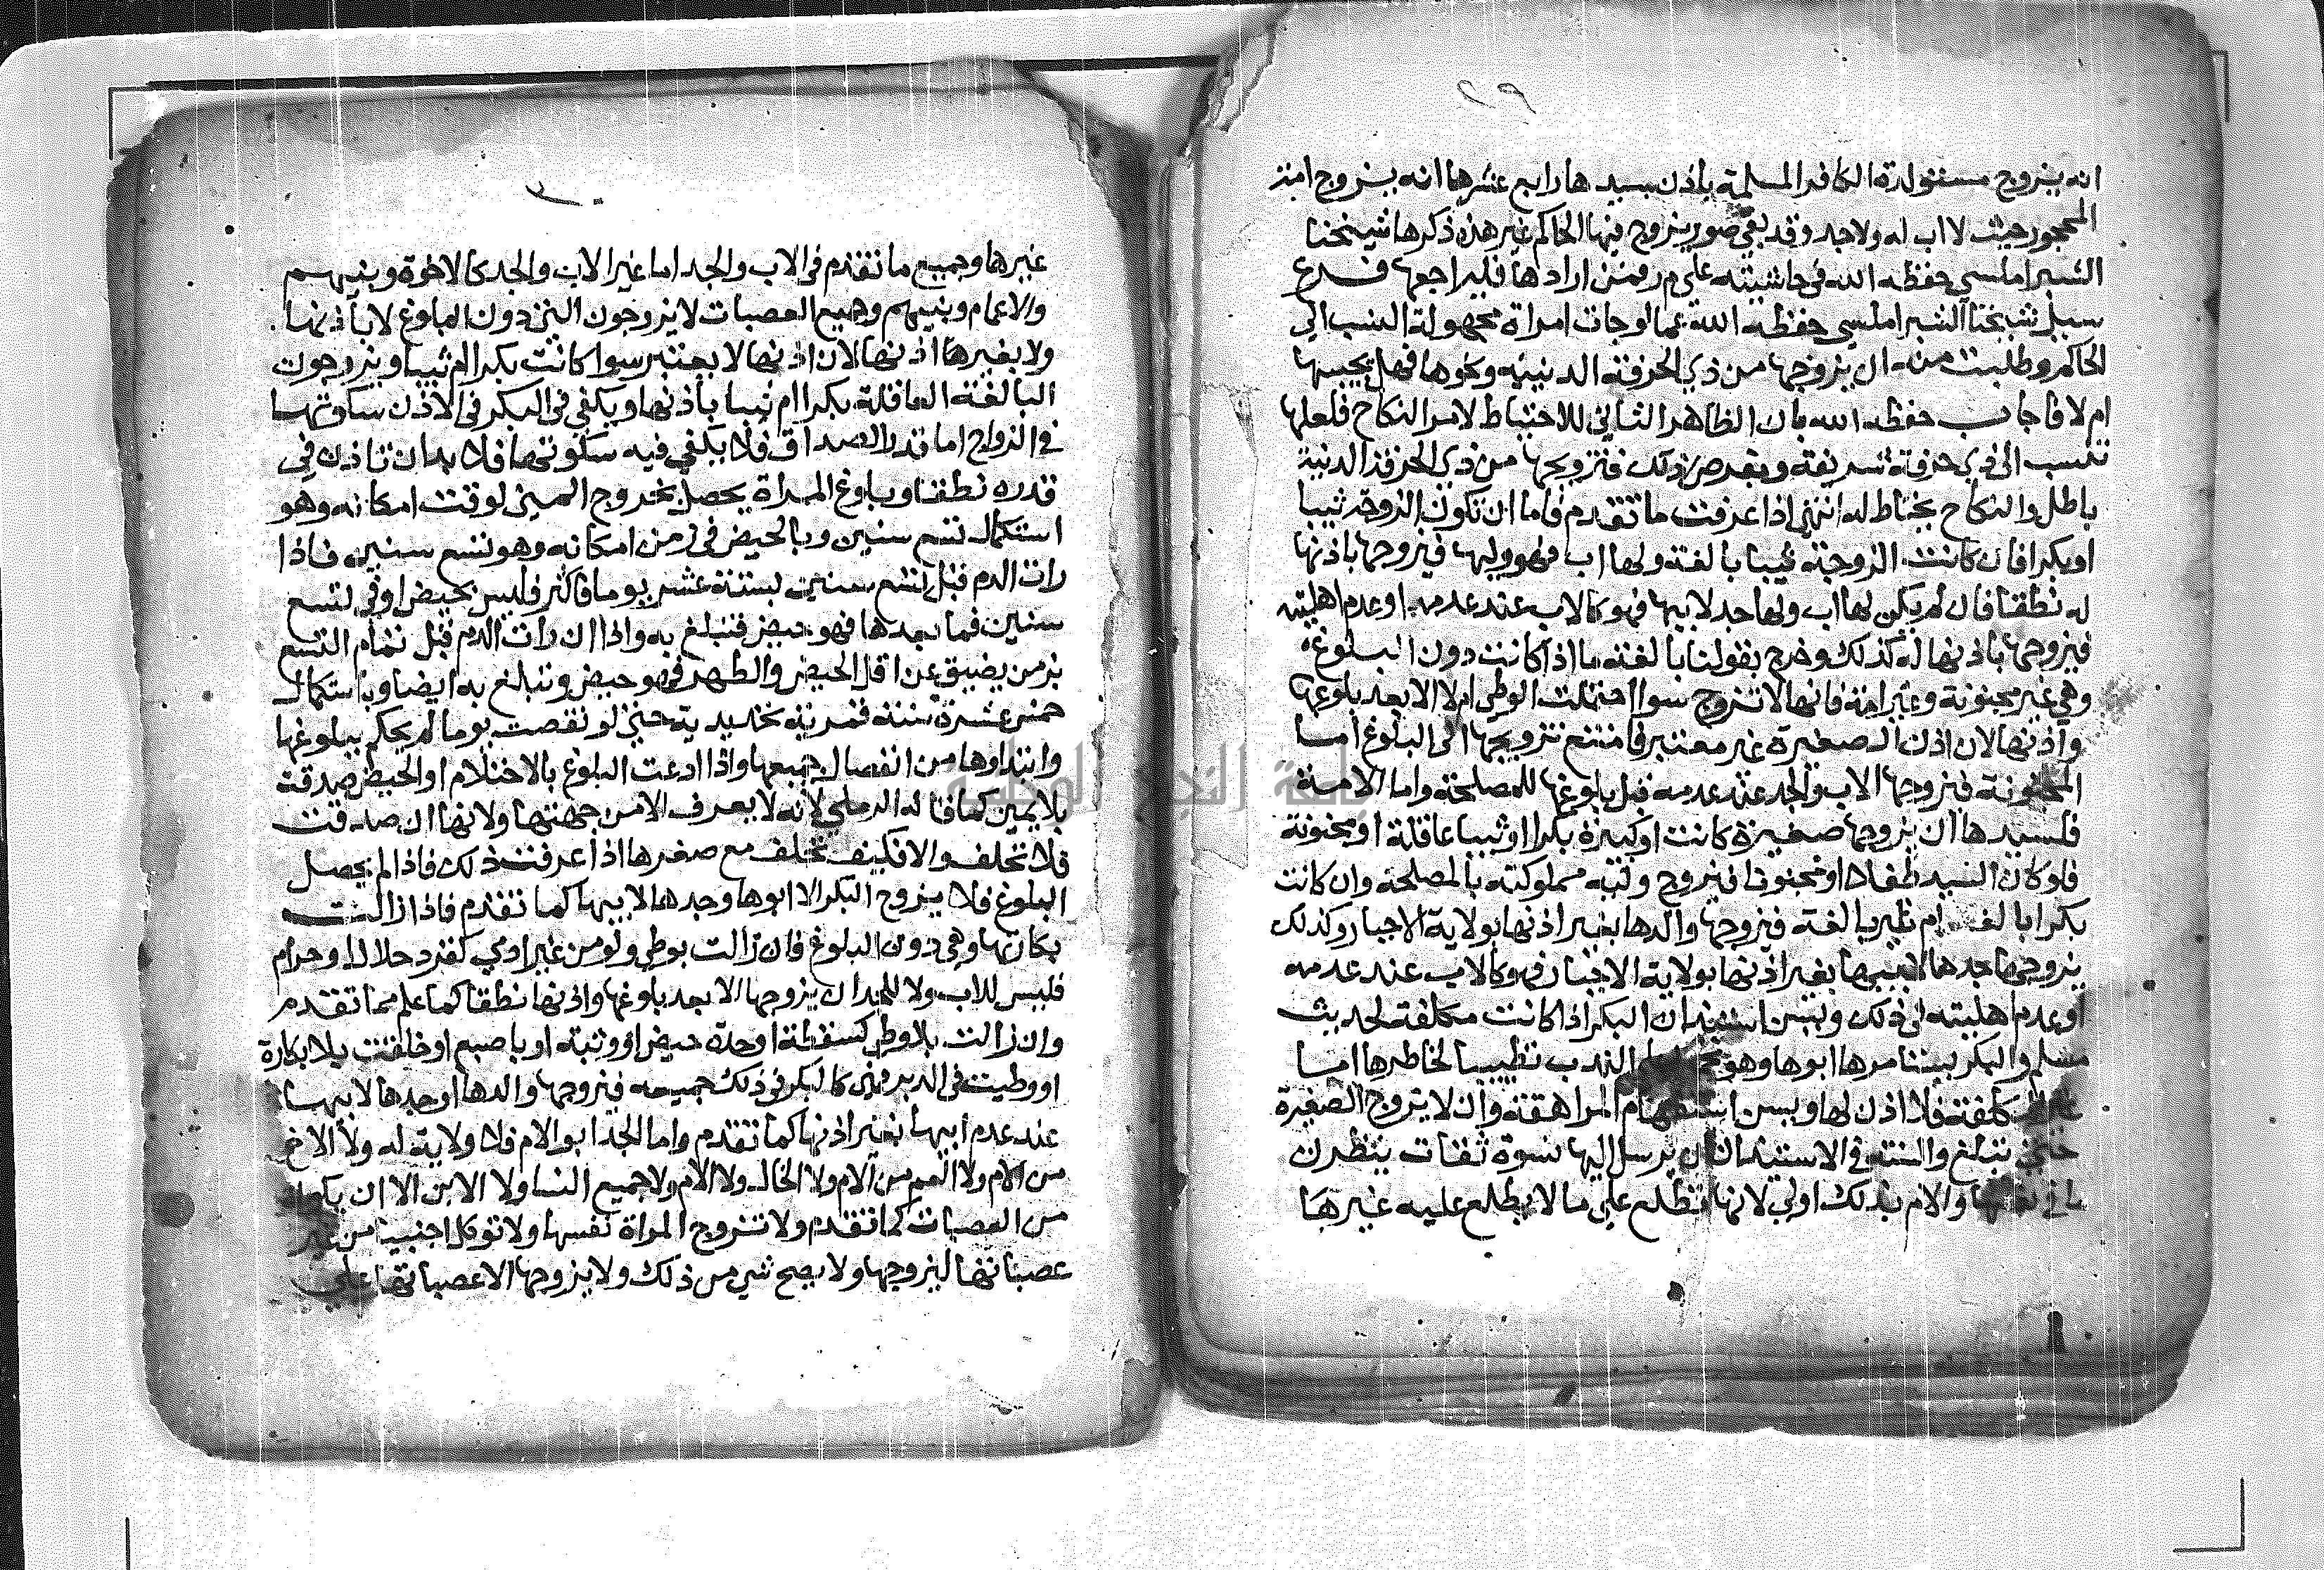 ٢٩
انه يزوج مستولدة الكافر المسلمة باذن سيدها رابع عشرها انه يزوج امة
المحجور حيث لا اب له ولا جد وقد بقي صور يزوج فيها الحاكم غير هذه ذكرها شيخنا
الشبراملسي حفظه الله في حاشيته على م ر فمن ارادها فليراجعها فرع
سيل شيخنا الشبراملسي حفظه الله عما لو جات امراة مجهولة النسب الى
الحاكم وطلبت منه ان يزوجها من ذي الحرفة الدنية ونحوها فهل يجيبها
ام لا فاجاب حفظه الله بان الظاهر الثاني للاحتياط لامر النكاح فلعلها
تنسب الى ذي حرفة شريفة وبفرض ذلك فتزويجها من ذي الحرفة الدنية
باطل والنكاح يحتاط له انتهى اذا عرفت ما تقدم فاما ان تكون الزوجة ثيبا
او بكرا فان كانت الزوجة ثيبا بالغة ولها اب فهو وليها فيزوجها باذنها
له نطقا فان لم يكن لها اب ولها جد لابيها فهو كالاب عند عدمه او عدم اهليته
فيزوجها باذنها له كذلك وخرج بقولنا بالغة ما اذا كانت دون البلوغ
وهي غير مجنونة وغير امة فانها لا تزوج سوا احتملت الوطي ام لا الا بعد بلوغها
واذنها لان اذن الصغيرة غير معتبر فامتنع تزويجها الى البلوغ اما
المجنونة فيزوجها الاب والجد عند عدمه قبل بلوغها للمصلحة واما الامة
فلسيدها ان يزوجها صغيرة كانت او كبيرة بكرا او ثيبا عاقلة او مجنونة
فلو كان السيد طفلا او مجنونا فيزوج وليه مملوكته بالمصلحة وان كانت
بكرا بالغة ام غير بالغة فيزوجها والدها بغير اذنها بولاية الاجبار وكذلك
يزوجها جدها لابيها بغير اذنها بولاية الاجبار فهو كالاب عند عدمه
او عدم اهليته في ذلك ويسن استيذان البكر اذا كانت مكلفة لحديث
مسلم والبكر يستامرها ابوها وهو الندب تطييبا لخاطرها اما
غير المكلفة فلا اذن لها ويسن استفهام المراهقة وان لا يزوج الصغيرة
حتى تبلغ والسنة في الاستيذان ان يرسل اليها نسوة ثقات ينظرن
ما في نفسها والام بذلك اولى لانها تطلع على ما لا يطلع عليه غيرها
٣٠
غيرها وجميع ما تقدم في الاب والجد اما غير الاب والجد كالاخوة وبنيهم
والاعمام وبنيهم وجميع العصبات لا يزوجون التي دون البلوغ لا باذنها
ولا بغيرها اذنها لان اذنها لا يعتبر سوا كانت بكرا ام ثيبا ويزوجون
البالغة العاقلة بكرا ام ثيبا باذنها ويكفي في البكر في الاذن سكوتها
في الزواج اما قدر الصداق فلا يكفي فيه سكوتها فلا بد ان تاذن في
قدره نطقا وبلوغ المراة يحصل بخروج المني لوقت امكانه وهو
استكمال تسع سنين وبالحيض في زمن امكانه وهو تسع سنين فاذا
رات الدم قبل تسع سنين بستة عشر يوما فاكثر فليس بحيض او في لتسع
سنين فما بعدها فهو حيض فتبلغ به واذا ان رات الدم قبل تمام التسع
بزمن يضيق عن اقل الحيض والطهر فهو حيض وتبلغ به ايضا وباستكمال
خمس عشرة سنة قمرية تحديدية حتى لو نقصت يوما لم يحكم ببلوغها
وابتداوها من انفصال جميعها واذا ادعت البلوغ بالاحتلام او الحيض صدقت
بلا يمين كما قاله الرملي لانه لا يعرف الا من جهتها ولانها ان صدقت
فلا تحلف والا فكيف تحلف مع صغرها اذا عرفت ذلك فاذا لم يحصل
البلوغ فلا يزوج البكر الا ابوها وجدها لابيها كما تقدم فاذا زالت
بكارتها وهي دون البلوغ فان زالت بوطي ولو من غير ادمي كقرد حلالا او حرام
فليس للاب ولا للجد ان يزوجها الا بعد بلوغها واذنها نطقا كما علم مما تقدم
وان زالت بلا وطي كسقطة او حدة حيض او وثبة او باصبع او خلقت بلا بكارة
او وطيت في الدبر فهي كالبكر في ذلك جميعه فيزوجها والدها او جدها لابيها
عند عدم ابيها بغير اذنها كما تقدم واما الجد ابو الام فلا ولاية له ولا الاخ
من الام ولا العم من الام ولا الخال ولا الام ولا جميع النسا ولا الابن الا ان يكون
من العصبات كما تقدم ولا تزوج المراة نفسها ولا توكل اجنبيا من غير
عصباتها ليزوجها ولا يصح شي من ذلك ولا يزوجها الا عصباتها على
جامعة النجاح الوطنية